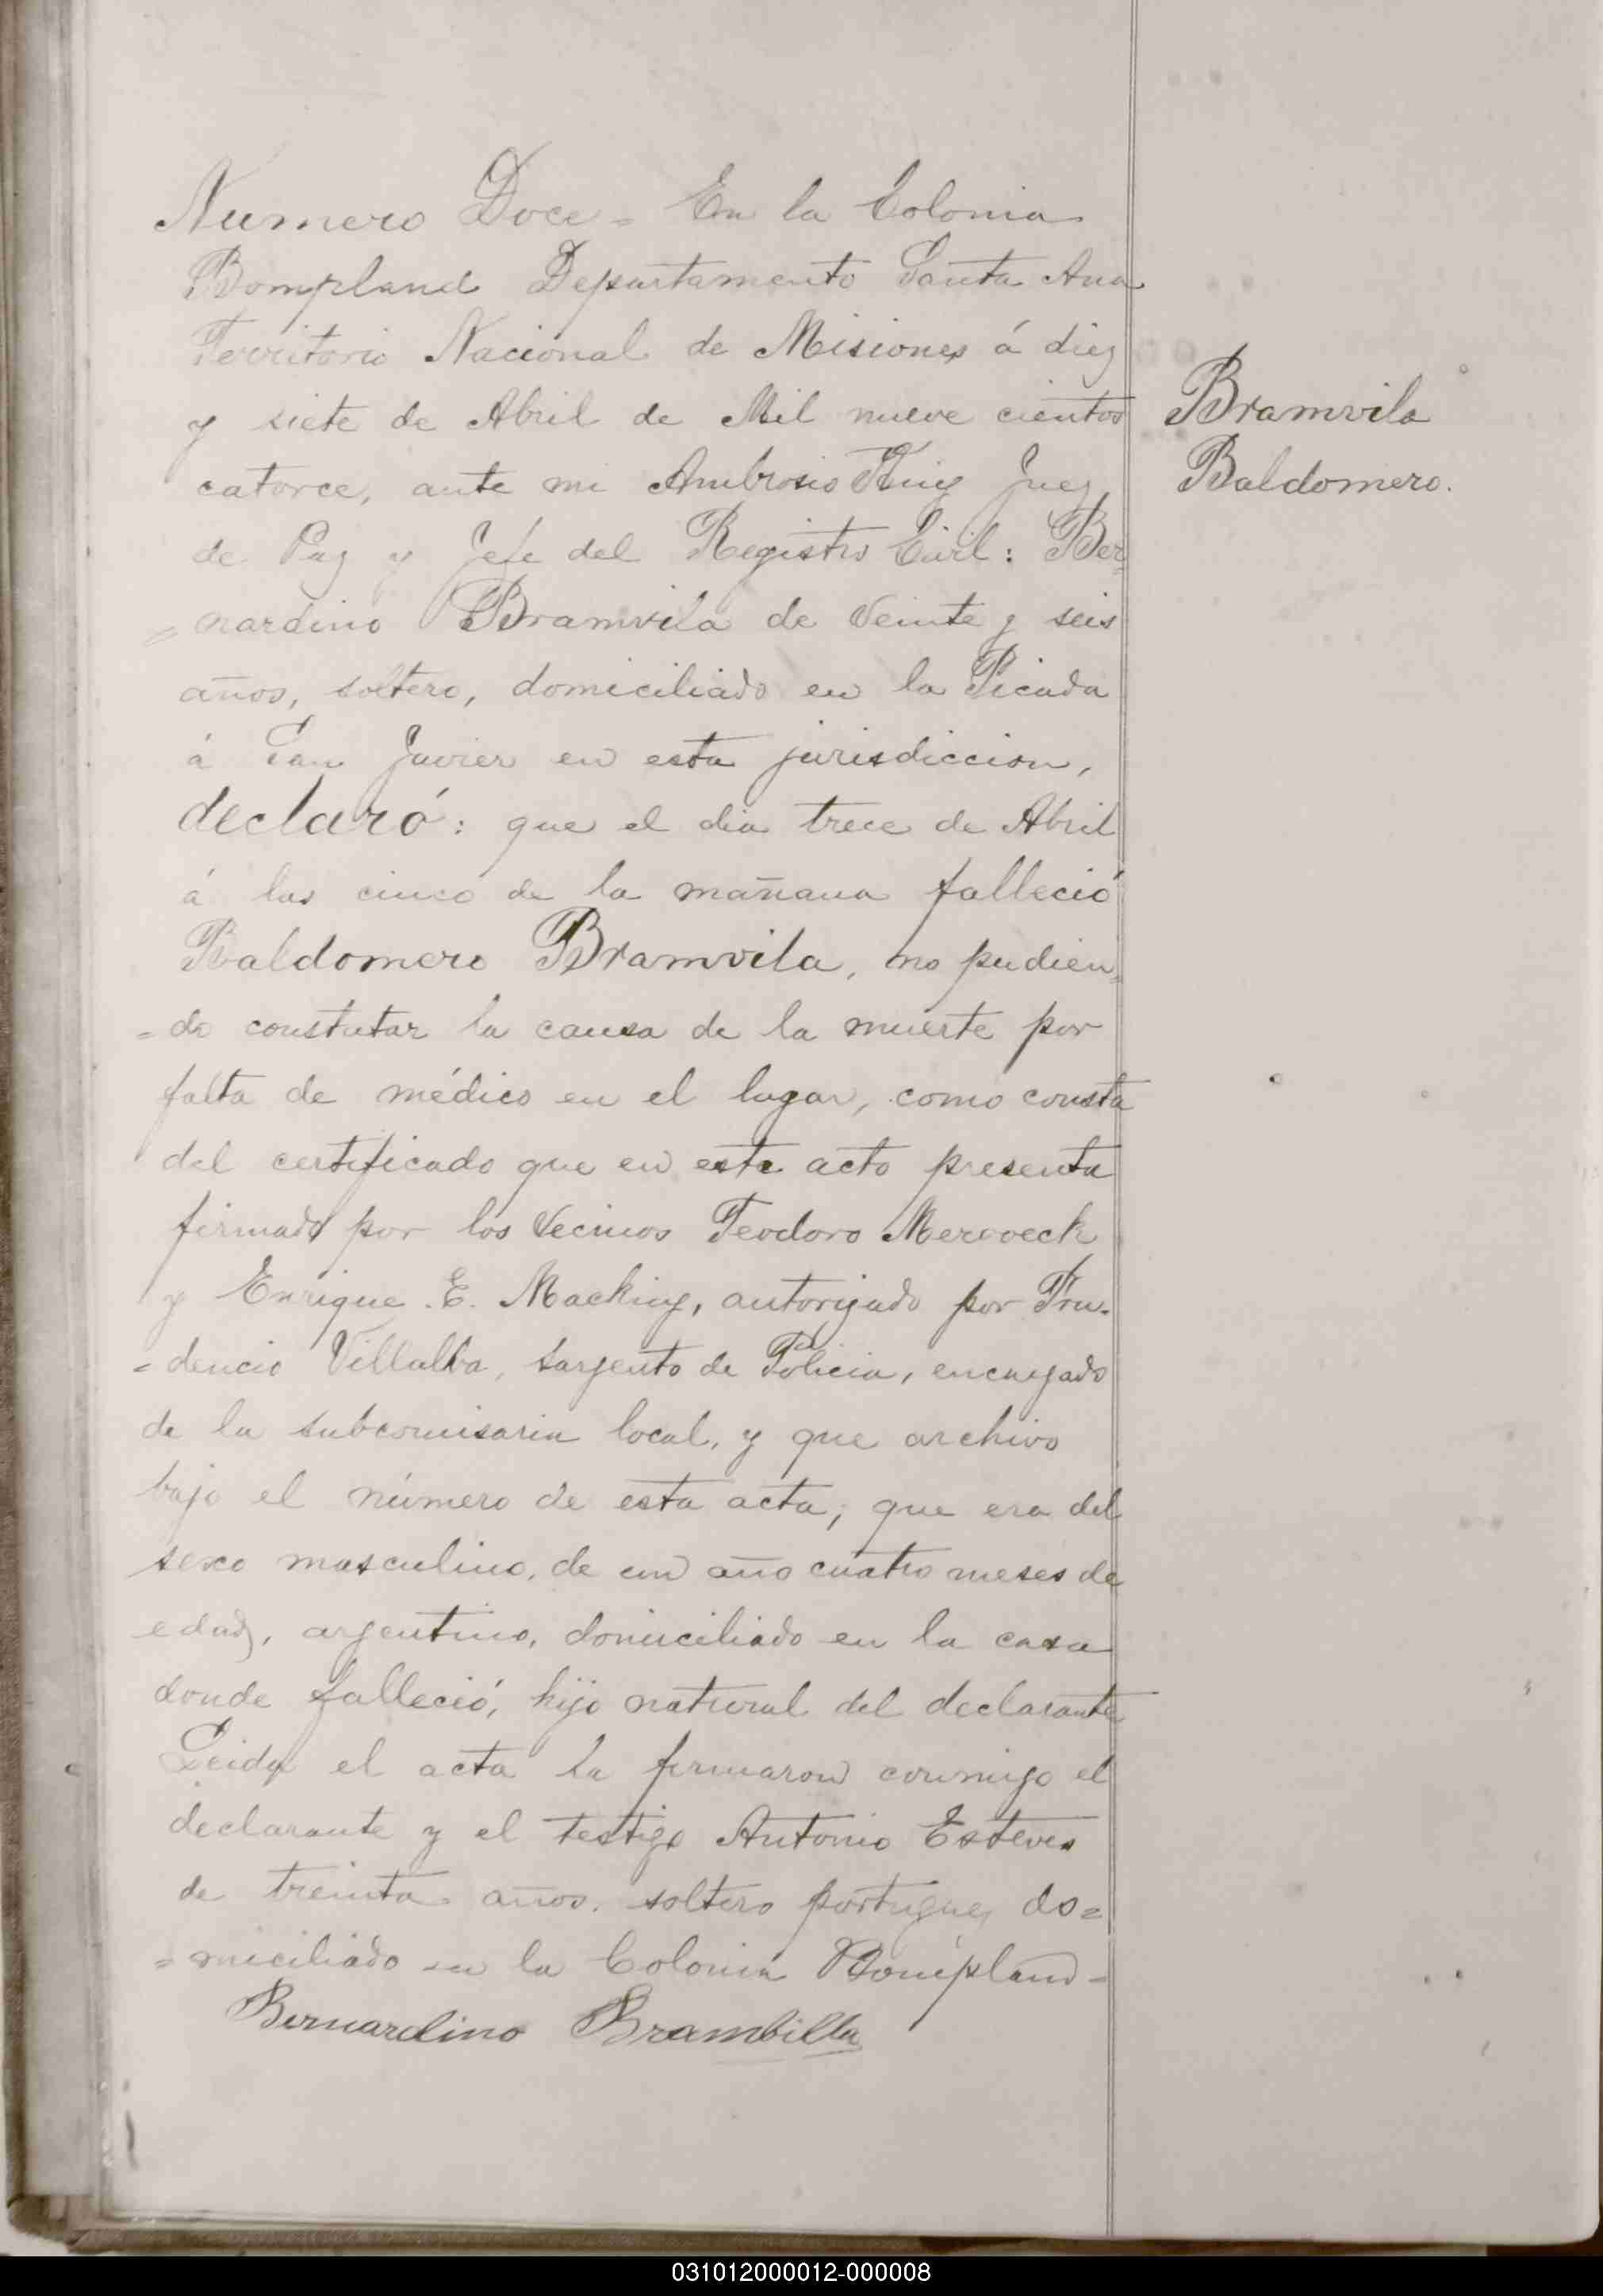 Numero Doce = En la Colonia
Bompland Departamento Santa Ana
Territorio Nacional de Misiones á diez
y siete de Abril de Mil nueve cientos
catorce, ante mi Ambrosio Juez
de Paz y Jefe del Registro Civil: Ber
= nardino Bramvila de veinte y seis
años, soltero, domiciliado en la Picada
á San Javier en esta jurisdiccion,
declaró: que el dia trece de Abril
á las cinco de la mañana falleció
Baldomero Bramvila, no pudien=
=do constatar la causa de la muerte por
falta de médico en el lugar, como consta
del certificado que en este acto presenta
firmado por los vecinos Teodoro
y Enrique E. Macking, autorizado por Pru-
=dencio Villalba, sargento de Policia, encargado
de la subcomisaria local, y que archivo
bajo el número de esta acta; que era del
sexo masculino, de un año cuatro meses de
edad, argentino, domiciliado en la casa
donde falleció, hijo natural del declarante
Leida el acta la firmaron conmigo el
declarante y el testigo Antonio Esteves
de treinta años, soltero portuguez do=
=miciliado en la Colonia Bompland=
Bernardino Brambilla
Bramvila
Baldomero.
031012000012-000008